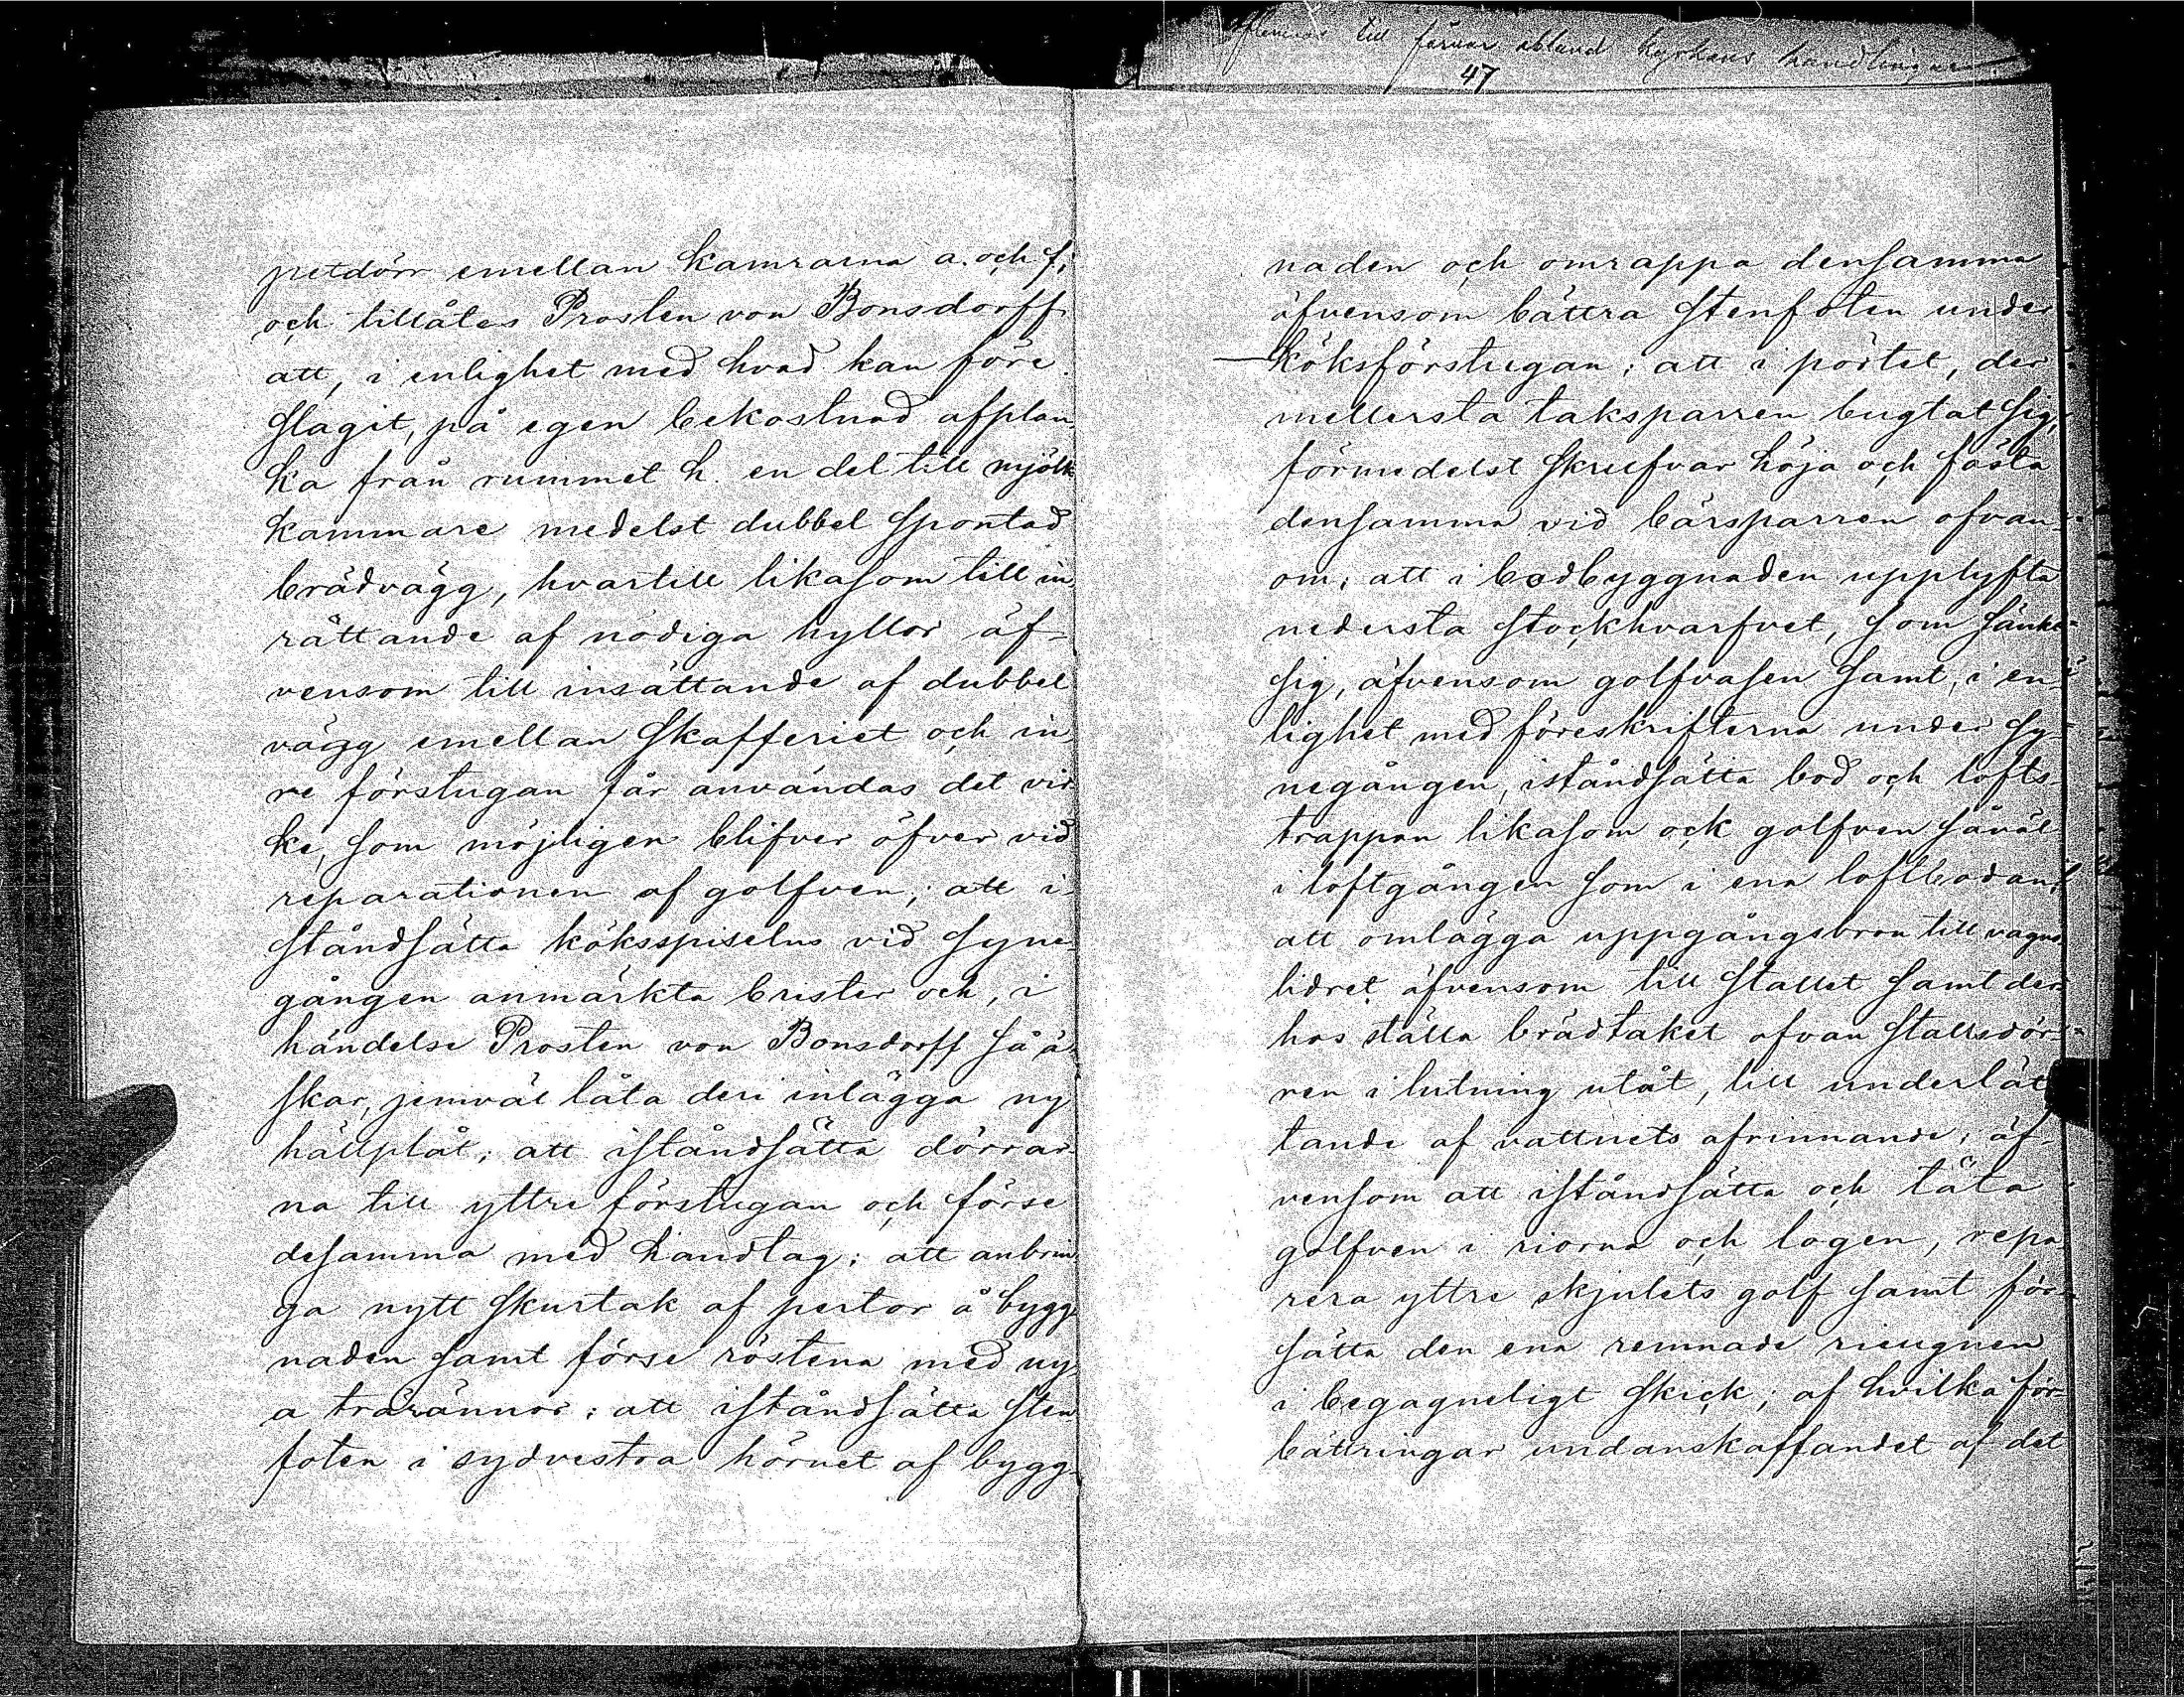 till förvar ibland kyrkans handlingar
47
petdörr emellan kamrarna a. och f;
och tillåtes Prosten von Bonsdorff
att, i enlighet med hvad han före
slagit, på egen bekostnad afplan-
ka från rummet h. en del till mjölk
kammare medelst dubbel spontad
brädvägg, hvartill likasom till in
rättande af nödiga hyllor äf-
vensom till insättande af dubbel
vägg emellan skafferiet och in
re förstugan får användas det vir
ke, som möjligen blifver öfver vid
reparationen af golfven; att i-
ståndsätta köksspiselns vid syne-
gången anmärkta brister och, i
händelse Prosten von Bonsdorff så å-
skar, jemväl låta deri inlägga ny
hällplåt; att iståndsätta dörrar
na till yttre förstugan och förse
desamma med handtag; att anbrin
ga nytt skurtak af pertor å bygg
naden samt förse röstena med ny
a trärännor; att iståndsätta sten
foten i sydvestra hörnet af bygg-
naden och omrappa densamma
äfvensom bättra stenfoten under
köksförstugan; att i pörtet, der
mellersta taksparren bugtat sig,
förmedelst skrufvar höja och fästa
densamma vid bärsparren ofvan-
om; att i bodbyggnaden upplyfta
nedersta stockhvarfvet, som sänkt
sig, äfvensom golfvasen samt, i en-
lighet med föreskrifterna under sy-
negången, iståndsätta bod och lofts-
trappan likasom ock golfven såväl
i loftgången som i ena loftbodan;
att omlägga uppgångsbron till vagns
lidret äfvensom till stallet samt der-
hos ställa brädtaket ofvan stallsdör-
ren i lutning utåt, till underlät
tande af vattnets afrinnande; äf-
vensom att iståndsätta och täta
golfven i riorna och logen, repa
rera yttre skjulets golf samt för-
sätta den ena remnade rieugnen
i begagneligt skick; af hvilka för-
bättringar undanskaffandet af det